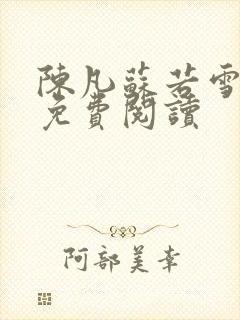 陳凡蘇若雪
免費閱讀
阿部美幸